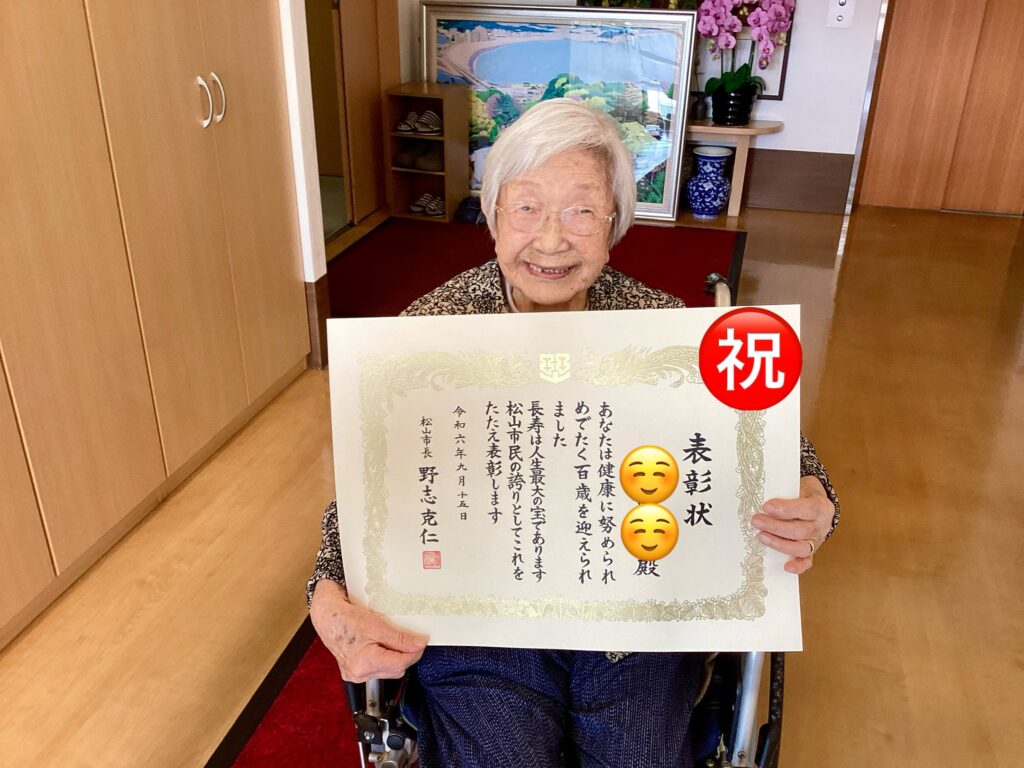 祝
表彰状
殿
あなたは健康に努められ
めでたく百歳を迎えられ
ました
長寿は人生最大の宝であります
松山市民の誇りとしてこれを
たたえ表彰します
令和六年九月十五日
松山市長 野志克仁